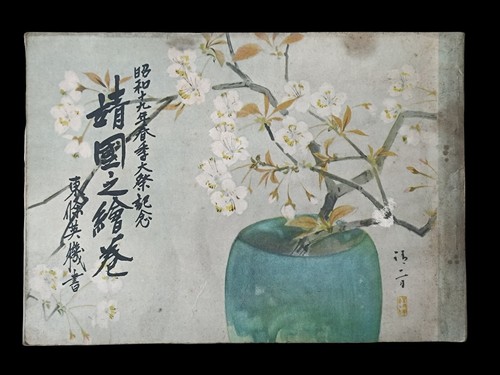 昭和十九年春季大祭記念
靖國之繪巻
東條英機書